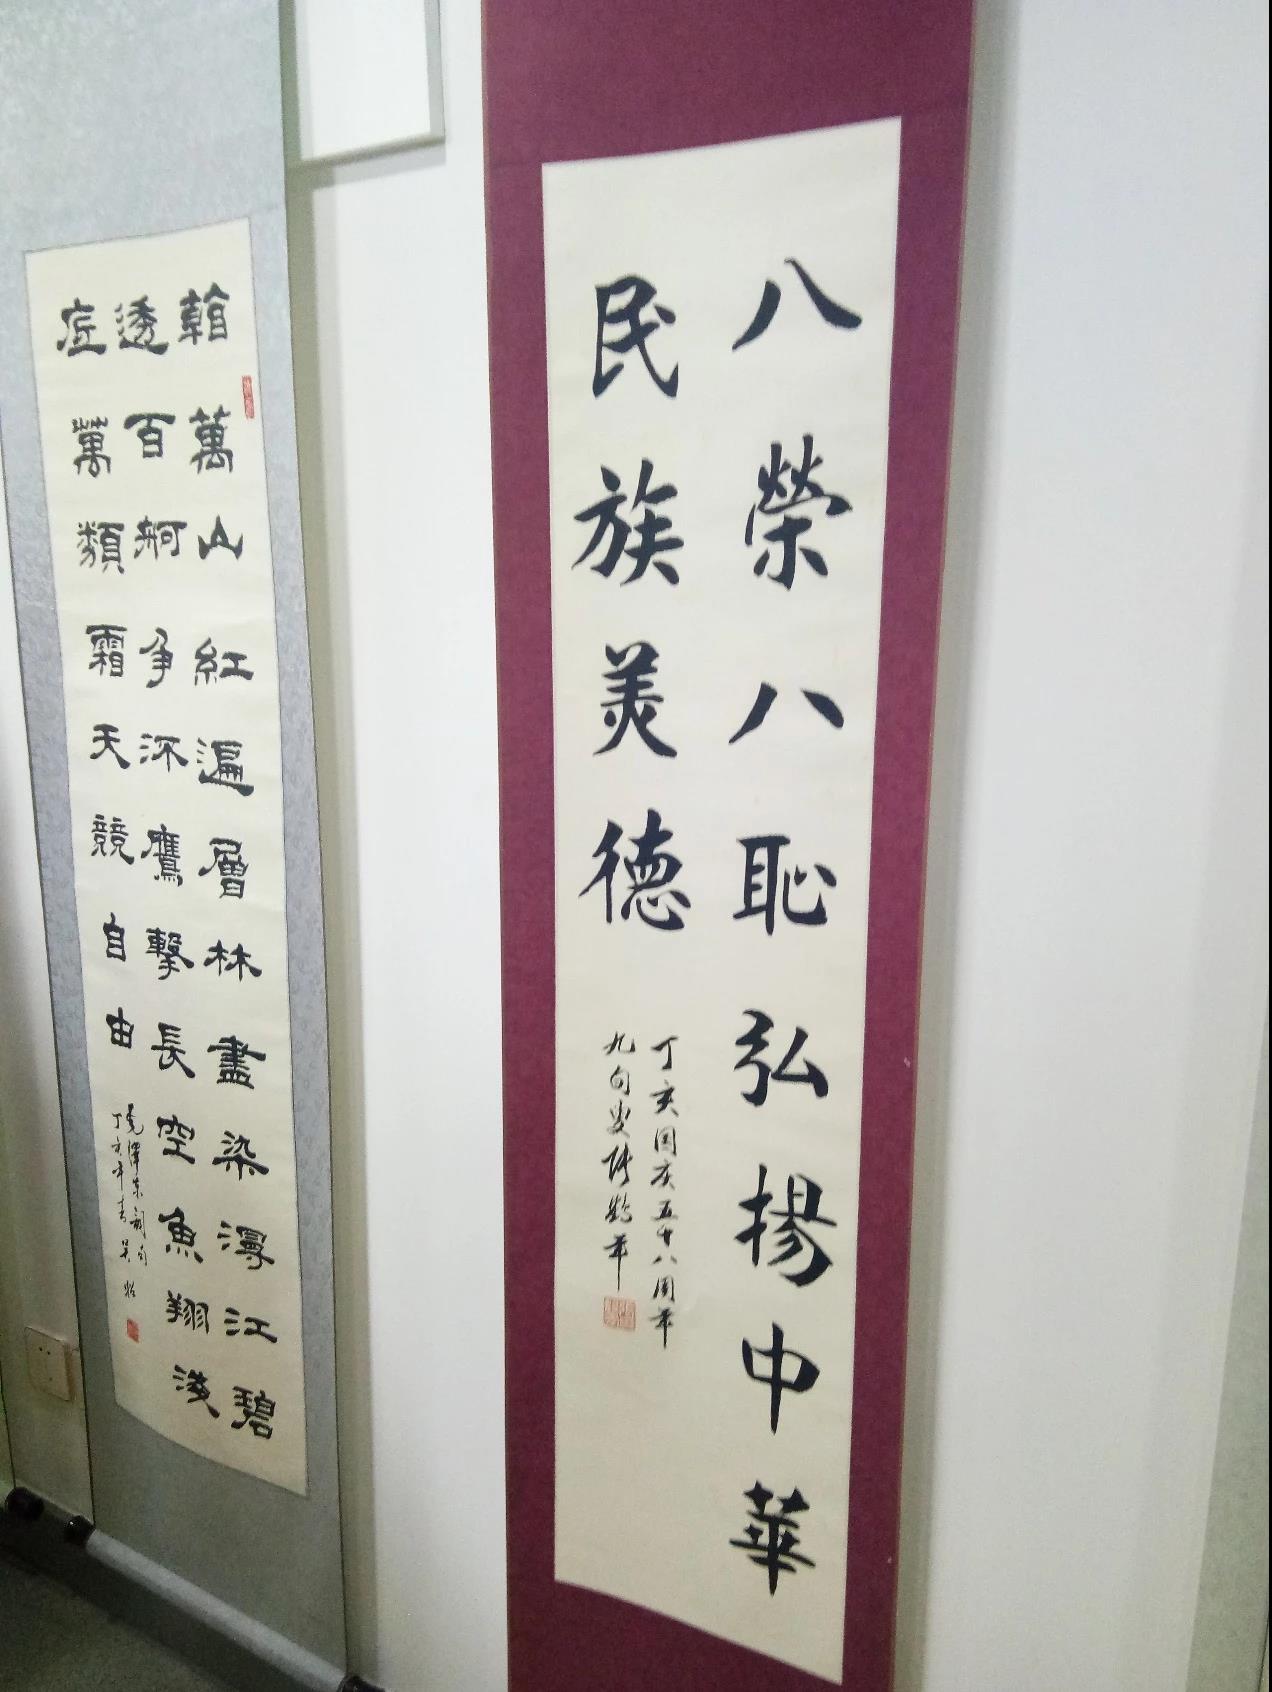 八榮八恥弘揚中華
民族美德
丁亥国庆五十八周年
九旬叟鹤年
看萬山紅遍層林盡染漫江碧
透百舸争流鷹擊長空魚翔淺
底萬類霜天競自由
毛澤東詞句
丁亥年春吴